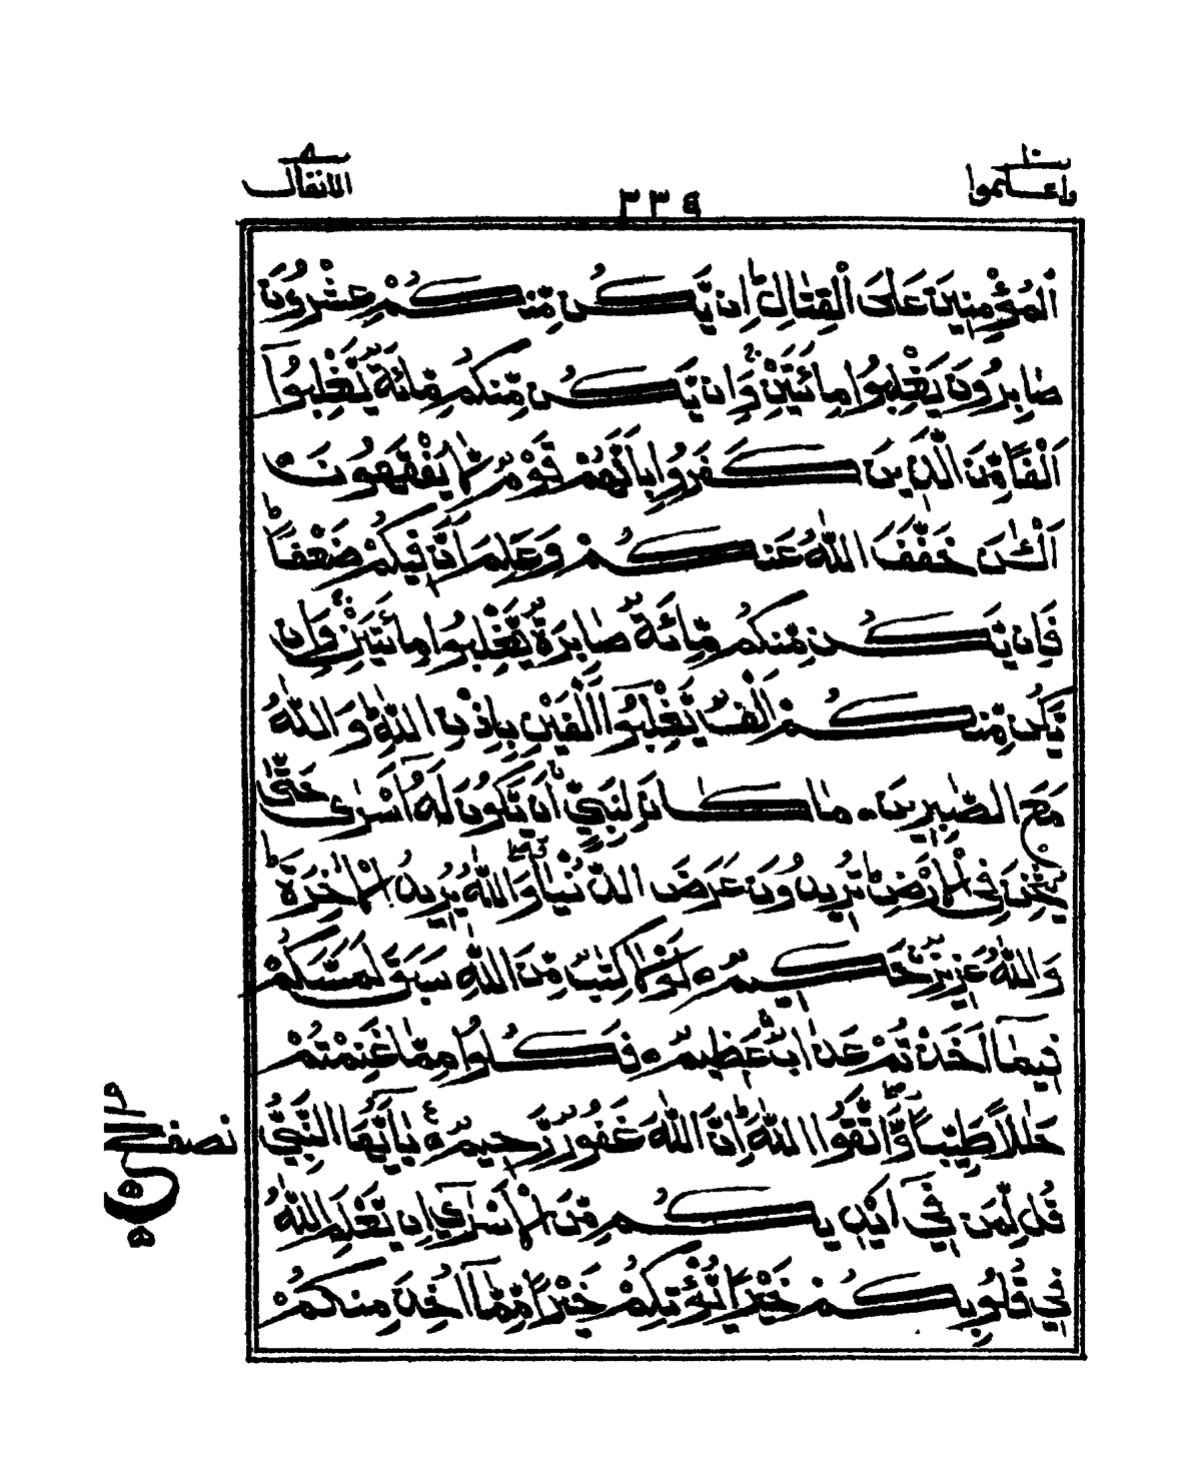 واعلموا ١٠
٢٣٤
الانفال ٨
اَلْمُؤْمِنِيْنَ عَلَى الْقِتَالِ ؕ اِنْ يَّكُنْ مِّنْكُمْ عِشْرُوْنَ
صَابِرُوْنَ يَغْلِبُوْا مِائَتَيْنِ ۚ وَاِنْ يَّكُنْ مِّنْكُمْ مِّائَةٌ يَّغْلِبُوْٓا
اَلْفًا مِّنَ الَّذِيْنَ كَفَرُوْا بِاَنَّهُمْ قَوْمٌ لَّا يَفْقَهُوْنَ ۝
اَلْـٰٔنَ خَفَّفَ اللّٰهُ عَنْكُمْ وَعَلِمَ اَنَّ فِيْكُمْ ضَعْفًا ؕ
فَاِنْ يَّكُنْ مِّنْكُمْ مِّائَةٌ صَابِرَةٌ يَّغْلِبُوْا مِائَتَيْنِ ۚ وَاِنْ
يَّكُنْ مِّنْكُمْ اَلْفٌ يَّغْلِبُوْٓا اَلْفَيْنِ بِاِذْنِ اللّٰهِ ؕ وَاللّٰهُ
مَعَ الصّٰبِرِيْنَ ۝ مَا كَانَ لِنَبِيٍّ اَنْ يَّكُوْنَ لَهٗٓ اَسْرٰى حَتّٰى
يُثْخِنَ فِى الْاَرْضِ ؕ تُرِيْدُوْنَ عَرَضَ الدُّنْيَا ۖ وَاللّٰهُ يُرِيْدُ الْاٰخِرَةَ ؕ
وَاللّٰهُ عَزِيْزٌ حَكِيْمٌ ۝ لَوْلَا كِتٰبٌ مِّنَ اللّٰهِ سَبَقَ لَمَسَّكُمْ
فِيْمَآ اَخَذْتُمْ عَذَابٌ عَظِيْمٌ ۝ فَكُلُوْا مِمَّا غَنِمْتُمْ
حَلٰلًا طَيِّبًا ۖ وَّاتَّقُوا اللّٰهَ ؕ اِنَّ اللّٰهَ غَفُوْرٌ رَّحِيْمٌ ۝ يٰٓاَيُّهَا النَّبِيُّ
قُلْ لِّمَنْ فِيْٓ اَيْدِيْكُمْ مِّنَ الْاَسْرٰٓى اِنْ يَّعْلَمِ اللّٰهُ
فِيْ قُلُوْبِكُمْ خَيْرًا يُّؤْتِكُمْ خَيْرًا مِّمَّآ اُخِذَ مِنْكُمْ
نصف